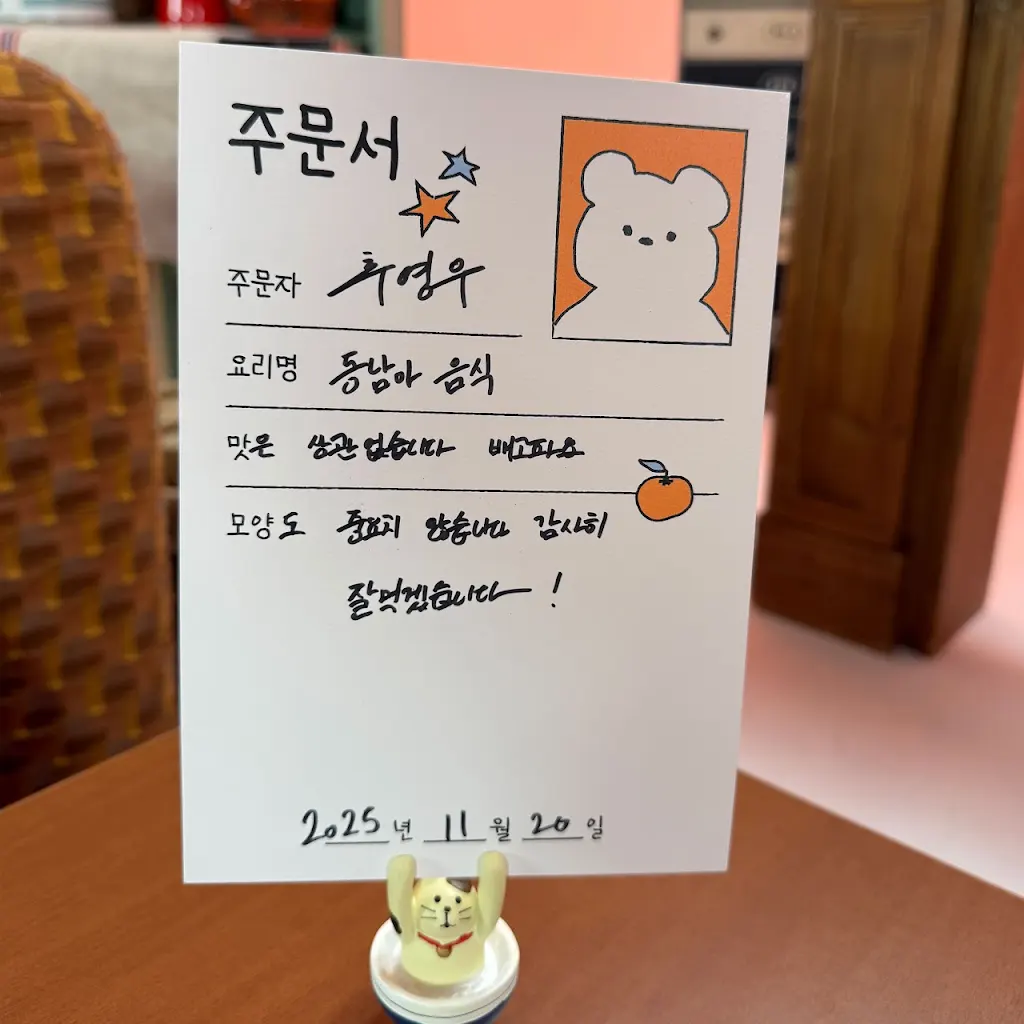 주문서
주문자 추영우
요리명 동남아 음식
맛은 상관 없습니다 배고파요
모양도 중요치 않습니다 감사히
잘먹겠습니다 !
2025년 11월 20일